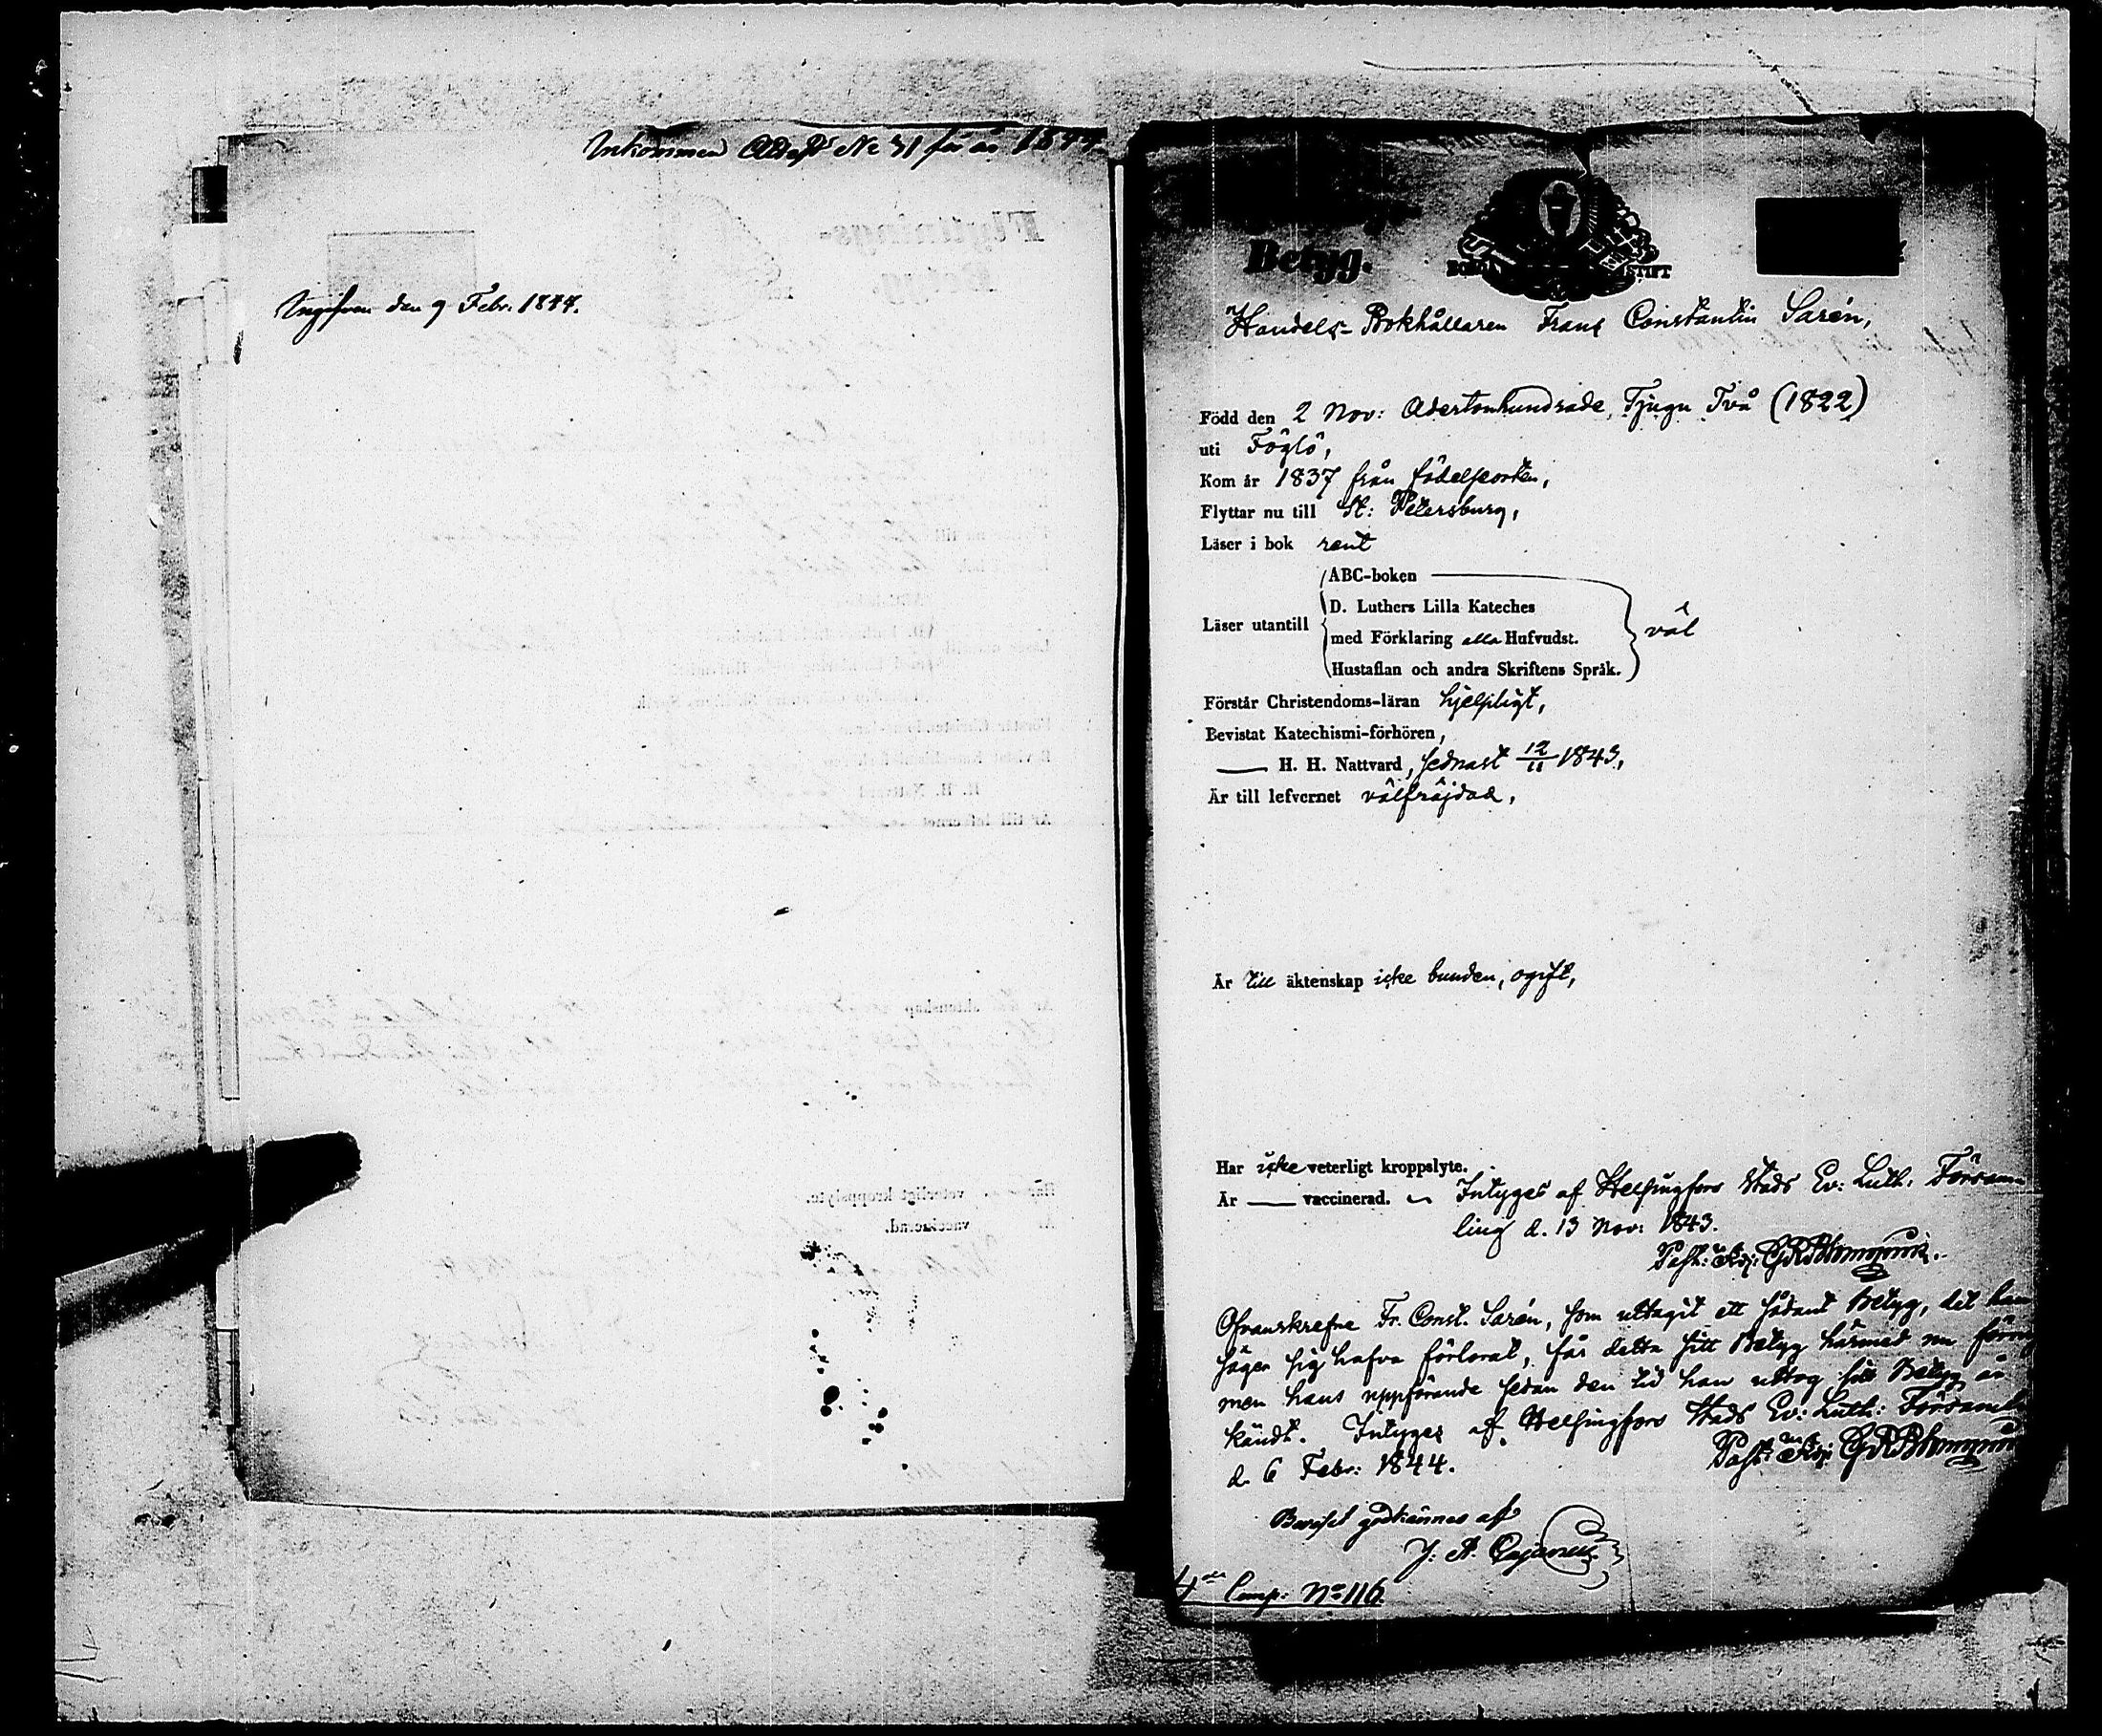 Inkommen Attest No 31 för år 1844
Ingifven den 9 Febr. 1844.
Betyg.
BORGÅ STIFT
Handels-Bokhållaren Frans Constantin Sarén,
Född den 2 Nov: Adertonhundrade, Tjugu Två (1822)
uti Föglö,
Kom år 1837 från födelseorten,
Flyttar nu till St: Petersburg,
Läser i bok rent
ABC-boken
D. Luthers Lilla Kateches
Läser utantill
med Förklaring alla Hufvudst.
väl
Hustaflan och andra Skriftens Språk.
Förstår Christendoms-läran hjelpligt,
Bevistat Katechismi-förhören,
— H. H. Nattvard, sednast 12/11 1843,
Är till lefvernet välfräjdad,
Är till äktenskap icke bunden, ogift,
Har icke veterligt kroppslyte.
Är — vaccinerad. Intygas af Helsingfors Stads Ev: Luth. Församling
d. 13 Nov: 1843.
Ofvanskrefne Fr. Const. Sarén, som uttagit ett sådant Betyg, det han
säger sig hafva förlorat, får detta sitt Betyg härmed nu
men hans uppförande sedan den tid han uttog sitt Betyg är
kändt. Intygas af Helsingfors Stads Ev: Luth: Församl
d. 6 Febr: 1844.
Beviset godkännes af
J. A.
4de Comp: No 116.